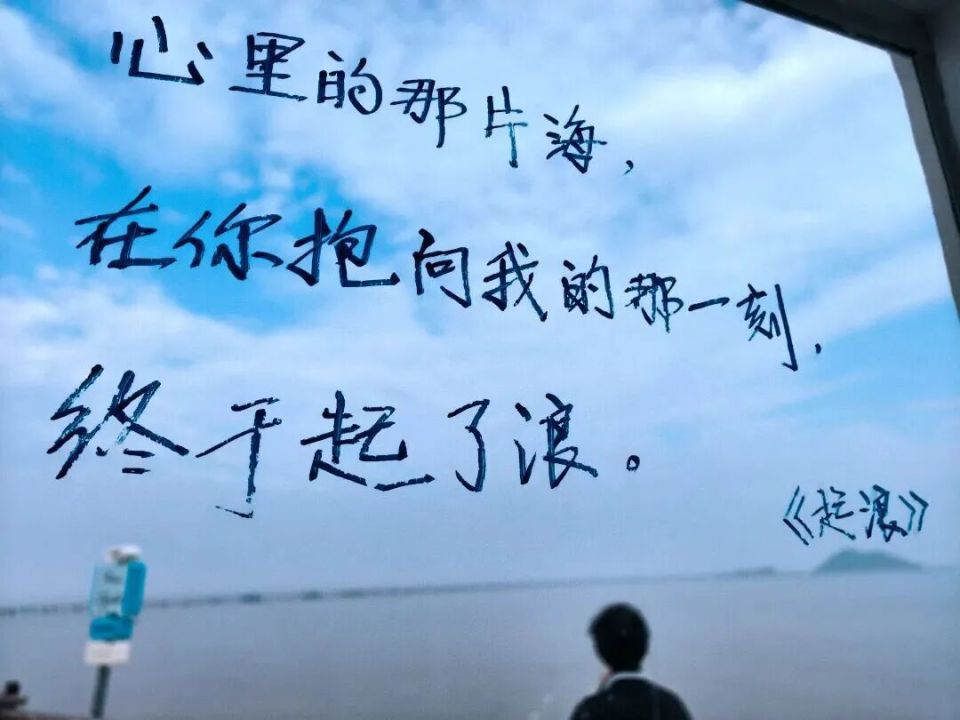 心里的那片海，
在你抱向我的那一刻，
终于起了浪。
《起浪》